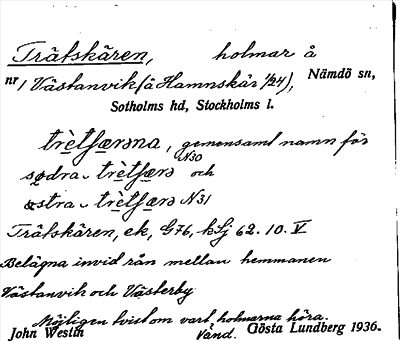 Träfskären, holmar å
nr 1 Västanvik (å Hamnskär 1/24), Nämdö sn,
Sotholms hd, Stockholms l.
trètſærəna, gemensamt namn för
södra trètſærə N30 och
östra trètſærə N31
Träfskären, ek, G76, kLj 62. 10. V
Belägna invid rån mellan hemmanen
Västanvik och Västerby
Möjligen tvist om vart holmarna höra.
John Westin Vänd. Gösta Lundberg 1936.